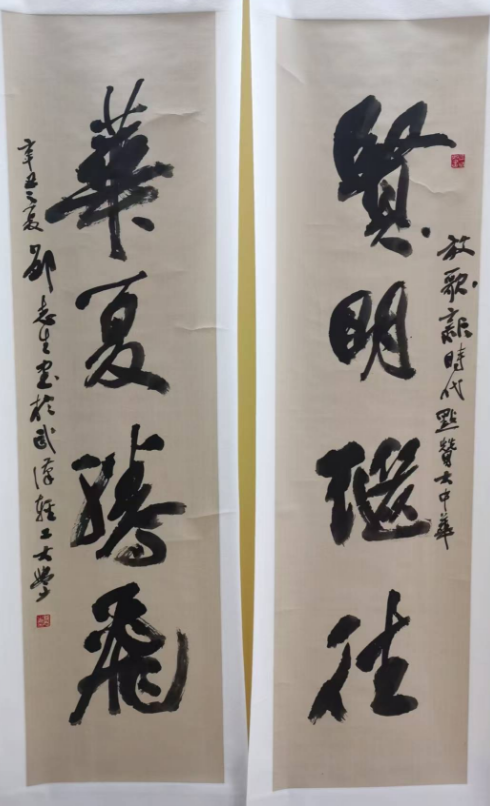 賢明繼往
放歌新時代點贊大中華
華夏騰飛
辛丑之夏鄒志生書於武漢輕工大學